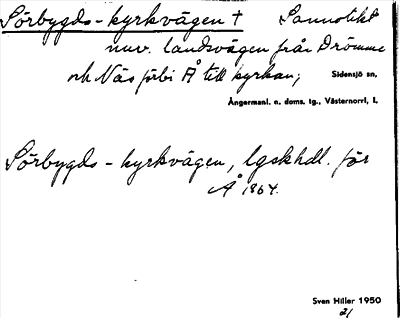 Sörbygds-kyrkvägen † Sannolikt
nuv. landsvägen från Drömme
och Näs förbi Å till kyrkan;
Sidensjö sn,
Ångermanl. n. doms. tg., Västernorrl. l.
Sörbygds-kyrkvägen, lgskhdl. för
Å 1864.
Sven Hiller 1950
21